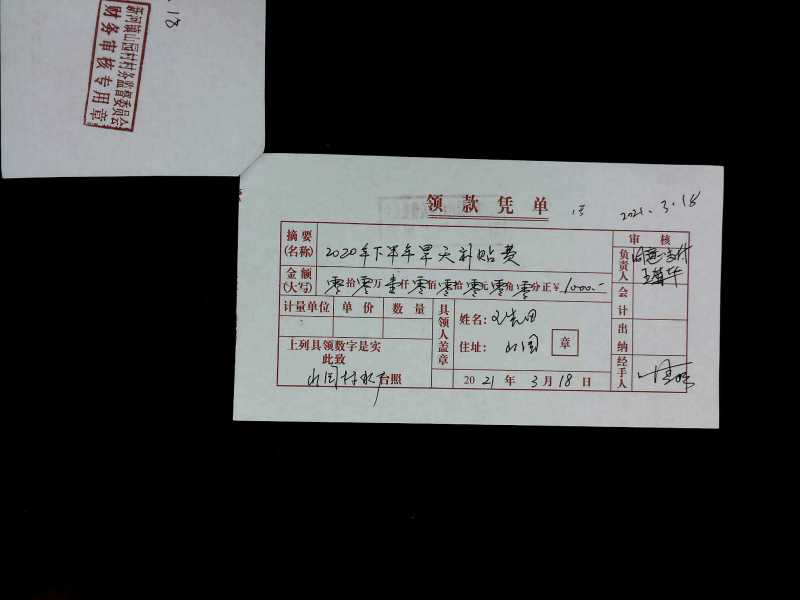 .18
新河镇山园村村务监督委员会
财务审核专用章
领款凭单
2021.3.18
摘要(名称) 2020年下半年旱天补贴费
审核
负责人 同意支付
金额(大写) 零拾零万壹仟零佰零拾零元零角零分正¥1000.-
会计
计量单位 单价 数量
具领人盖章
姓名:
住址: 山园 章
出纳
上列具领数字是实
此致
山园村 台照
2021年3月18日
经手人